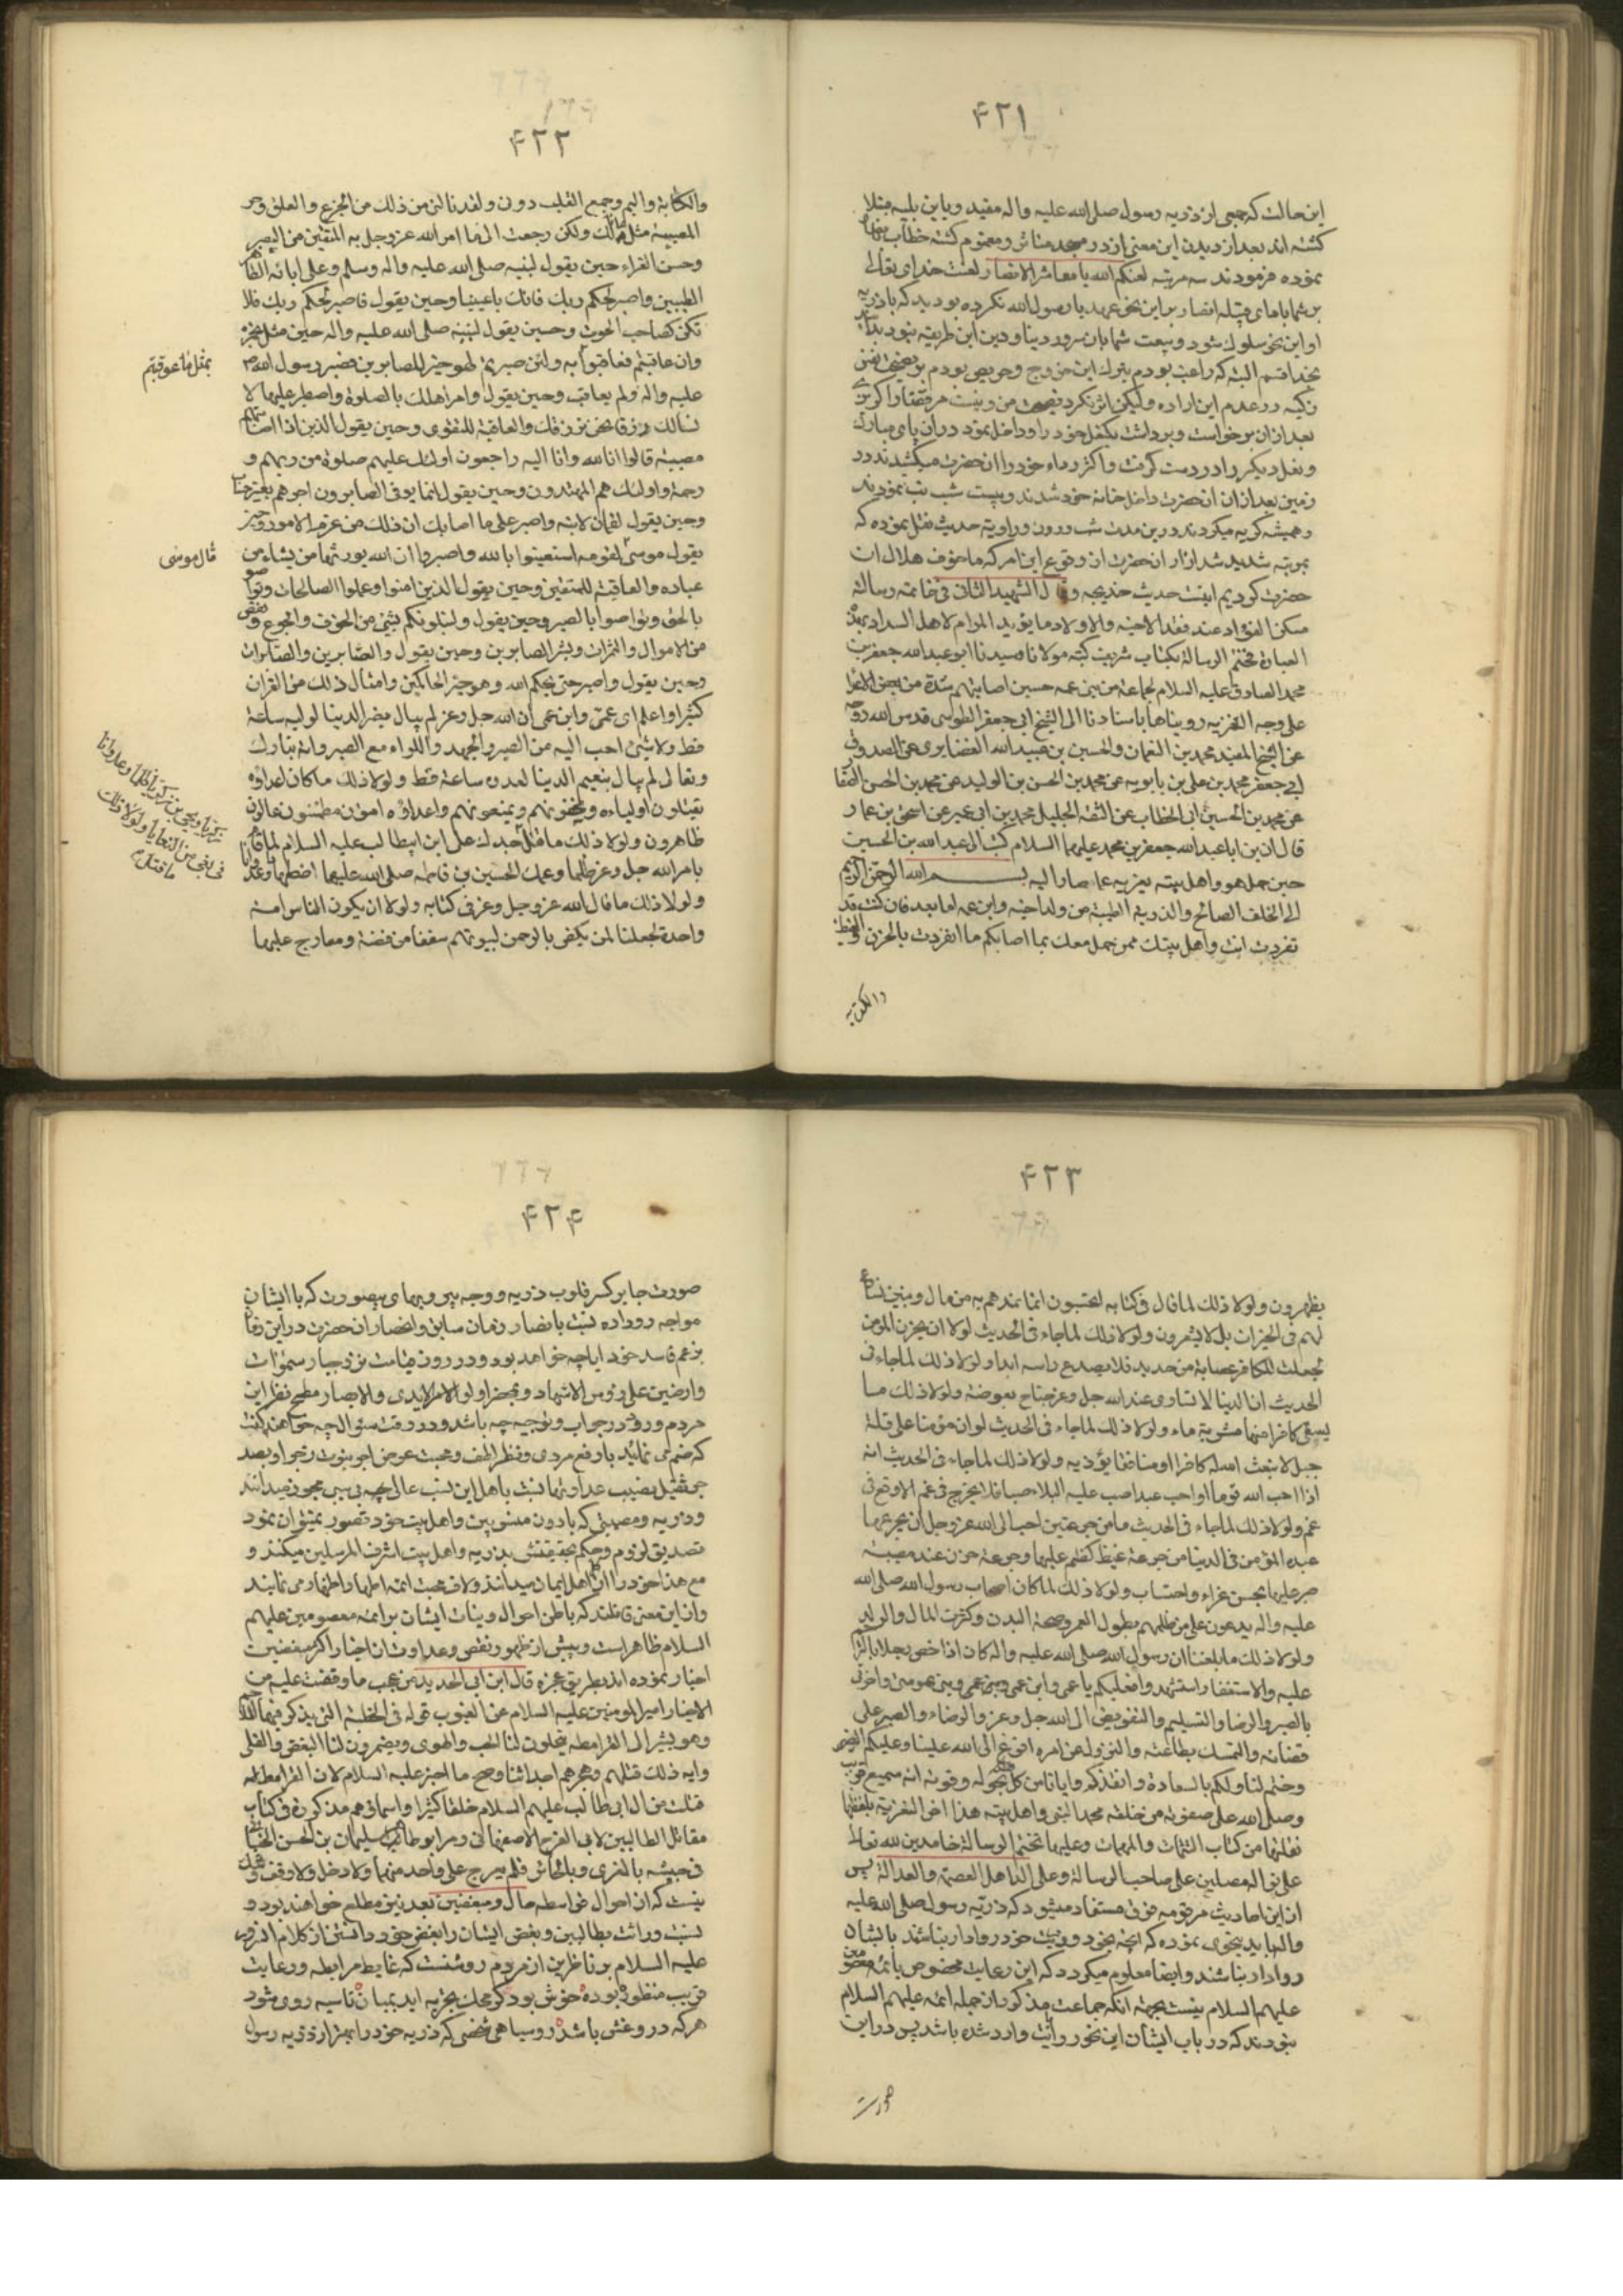 ۴۲۱
این حالت که جمعی از ذریه رسول صلی الله علیه واله مقید و باین بلیه مبتلا
کشته اند بعد از دیدن این معنی از در مسجد متاثر و مغموم کشته خطاب بانها
نموده فرمودند سه مرتبه لعنکم الله یا معاشر الانصار لعنت خدای تعالی
بر شما باد ای قبیله انصار بر این نحو عهد با رسول الله نکرده بودید که با ذریه
او این نحو سلوک شود و بیعت شما بان سرور دینا و دین این طریقه نبود بدانید
بخدا قسم البته که راغب بودم بترک این خروج و حریص بودم بر
در عدم این اراده ولیکن اثر نکرد نصیحت من و نیست مر قضا را
بعد از ان برخواست و برداشت یکنعل خود را و داخل نمود در ان پای مبارک
و نعل دیکر را در دست کرفت و اکثر رداء خود را ان حضرت میکشیدند در
زمین بعد از ان ان حضرت داخل خانه خود شدند و بیست شب تب نمودند
و همیشه کریه میکردند در بن مدت شب و روز و راویه حدیث نقل نموده که
بمرتبه شدید شد ازار ان حضرت از وقوع این امر که ما خوف هلاک ان
حضرت کردیم اینست حدیث خدیجه وقال الشهید الثانی فی خاتمة رسالة
مسکن الفؤاد عند فقد الاحبة والاولاد ما یؤید المرام لاهل السداد بهذه
العبارة فختم الرسالة بکتاب شریف کتبه مولانا وسیدنا ابو عبدالله جعفر بن
محمد الصادق علیه السلام لجماعة من بنی عمه حسین اصابتهم شدة من بعض الاعداء
علی وجه التعزیه رویناها باسنادنا الی الشیخ ابی جعفر الطوسی قدس الله روحه
عن الشیخ المفید محمد بن النعمان والحسین بن عبیدالله الغضایری عن الصدوق
ابی جعفر محمد بن علی بن بابویه عن محمد بن الحسن بن الولید عن محمد بن الحسن الصفار
عن محمد بن الحسین ابن ابی الخطاب عن الثقة الجلیل محمد بن ابی عمیر عن اسحق بن عمار
قال ان ابا عبدالله جعفر بن محمد علیهما السلام کتب الی عبدالله بن الحسن
حین حمل هو واهل بیته یعزیه عما صار الیه بسم الله الرحمن الرحیم
الی الخلف الصالح والذریة الطیبة من ولد اخیه وابن عمه اما بعد فان کنت قد
تفردت انت واهل بیتک ممن حمل معک بما اصابکم ما انفردت بالحزن والغیظ
والکابه
۴۲۲
والکابة والیم وجع القلب دون ولقد نالنی من ذلک من الجزع والقلق وحر
المصیبة مثل ما نالک ولکن رجعت الی ما امر الله عز وجل به المتقین من الصبر
وحسن العزاء حین یقول لنبیه صلی الله علیه واله وسلم وعلی ابائه الطاهر
الطیبین واصبر لحکم ربک فانک باعیننا وحین یقول فاصبر لحکم ربک فلا
تکن کصاحب الحوت وحین یقول لنبیه صلی الله علیه واله حین مثل بحمزة
وان عاقبتم فعاقبوا به ولئن صبرتم لهو خیر للصابرین فصبر رسول الله ص
بمثل ما عوقبتم
علیه واله ولم یعاقب وحین یقول وامر اهلک بالصلوة واصطبر علیها لا
نسالک رزقا نحن نرزقک والعاقبة للتقوی وحین یقول الذین اذا اصابتهم
مصیبة قالوا انا لله وانا الیه راجعون اولئک علیهم صلوة من ربهم و
رحمة واولئک هم المهتدون وحین یقول انما یوفی الصابرون اجرهم بغیر حساب
وحین یقول لقمان لابنه واصبر علی ما اصابک ان ذلک من عزم الامور وحین
یقول موسی لقومه استعینوا بالله واصبروا ان الله یورثها من یشاء من
قال موسی
عباده والعاقبة للمتقین وحین یقول الذین امنوا وعملوا الصالحات وتواصوا
بالحق وتواصوا بالصبر وحین یقول ولنبلونکم بشئ من الخوف والجوع ونقص
من الاموال والثمرات وبشر الصابرین وحین یقول والصابرین والصابرات
وحین یقول واصبر حتی یحکم الله وهو خیر الحاکمین وامثال ذلک من القران
کثیر واعلم ای عمی وابن عمی ان الله جل وعز لم یبال بضر الدینا لولیه ساعة
قط ولا شئ احب الیه من الصبر والجهد واللواء مع الصبر وانه تبارک
وتعالی لم یبال بنعیم الدینا لعدوه ساعة قط ولولا ذلک ما کان اعداؤه
یقتلون اولیاءه ویخفونهم ویمنعونهم واعداؤه امنون مطمئنون عالون
ظاهرون ولولا ذلک ما قتل جدک علی ابن ابیطالب علیه السلام لما قام
بامر الله جل وعز ظلما وعمک الحسین بن فاطمة صلی الله علیهما اضطهادا وعدوانا
زکریا ویحیی بن زکریا ظلما وعدوانا
فی بغی من البغایا ولولا ذلک
ما قتل
ولولا ذلک ما قال الله عز وجل وعز فی کتابه ولولا ان یکون الناس امة
واحدة لجعلنا لمن یکفر بالرحمن لبیوتهم سقفا من فضة ومعارج علیها
۴۲۳
یظهرون ولولا ذلک لما قال فی کتابه ایحسبون انما نمدهم به من مال وبنین نسارع
لهم فی الخیرات بل لا یشعرون ولولا ذلک لما جاء فی الحدیث لولا ان یحزن المؤمن
لجعلت للکافر عصابة من حدید فلا یصدع راسه ابدا ولولا ذلک لما جاء فی
الحدیث ان الدینا لا تساوی عند الله جل وعز جناح بعوضة ولولا ذلک ما
یسقی کافرا منها شربة ماء ولولا ذلک لما جاء فی الحدیث لو ان مؤمنا علی قلة
جبل لابتعث الله له کافرا او منافقا یؤذیه ولولا ذلک لما جاء فی الحدیث انه
اذا احب الله قوما او احب عبدا صب علیه البلاء صبا فلا یخرج فی غم الا وقع فی
غم ولولا ذلک لما جاء فی الحدیث ما من جرعتین احب الی الله عز وجل ان یجرعهما
عبده المؤمن فی الدینا من جرعة غیظ کظم علیها وجرعة حزن عند مصیبة
صبر علیها بحسن عزاء واحتساب ولولا ذلک لما کان اصحاب رسول الله صلی الله
علیه واله یدعون علی من ظلمهم بطول العمر وصحة البدن وکثرت المال والولد
ولولا ذلک ما بلغنا ان رسول الله صلی الله علیه واله کان اذا خص رجلا بالترحم
علیه والاستغفار استشهد وفعلیکم یا عمی وابن عمی وبنی عمومتی واخوتی
بالصبر والرضا والتسلیم والتفویض الی الله جل وعز والرضاء والصبر علی
قضائه والتمسک بطاعته والنزول عن امره افرغ الله علینا وعلیکم الصبر
وختم لنا ولکم بالسعادة وانقذکم وایانا من کل هلکة بحوله وقوته انه سمیع قریب
وصلی الله علی صفوته من خلقه محمد النبی واهل بیته هذا اخر التعزیة بلفظها
نقلتها من کتاب التتمات والمهمات وعلیها نختم الرسالة حامدین لله تعالی
مصلین علی صاحب الرسالة وعلی اله اهل العصمة والعدالة پس
از این احادیث مرقومه فوق مستفاد میشود که ذریه رسول صلی الله علیه
واله باید بنحوی نموده که انچه بخود و خود روادار نباشند بایشان
روادار نباشند وایضا معلوم میکردد که این رعایت مخصوص بائمه معصومین
علیهم السلام نیست بجهته انکه جماعت مذکور از جمله ائمه علیهم السلام
نبودند که در باب ایشان این نحو روایت وارد شده باشد پس در این
صورت
۴۲۴
صورت جابر کسر قلوب ذریه و وجه سیر و پیمای بیصورت که با ایشان
مواجه رو داده نسبت بانصار زمان سابق وانصار ان حضرت در این زمان
بزعم فاسد خود ایا چه خواهد بود و در روز قیامت نزد جبار سموات
وارضین علی رؤس الاشهاد وبمحضر اولو الایدی والابصار مطمح نظر این
مردم وروز در جواب و توجیه چه باشد و در وقت سئوال چه خواهند کفت
ونظر لطف ومحبت عوض اجر نبوت
نصیب عداوتها نسبت باهل این نسب عالی
وذریه ومصیبتی که با دون منسوبین واهل بیت خود تصور نمیتوان نمود
تصدیق لزوم وحکم بحقیقتش بذریه واهل بیت اشرف المرسلین میکنند و
مع هذا خود را از اهل ایمان میدانند ولاف محبت ائمه اطهار اظهار می نمایند
واز این معنی غافلند که باطن احوال ونیات ایشان بر ائمه معصومین علیهم
السلام ظاهر است وپیش از ظهور ونقص وعداوتشان اخبار اکثر مبغضین
اخبار نموده اند بطریق معجزه قال ابن ابی الحدید من عجب ما وقفت علیه من
الاخبار امیر المومنین علیه السلام عن الغیوب قوله فی الخطبة التی یذکر فیها
وهو یشیر الی القرامطه ینتحلون لنا الحب والهوی ویضمرون لنا البغض والقلی
وایة ذلک قتلهم وهجرهم احداثنا وصح ما اخبر علیه السلام لان القرامطة
قتلت من ال ابی طالب علیهم السلام خلقا کثیرا واسمائهم مذکورة فی کتاب
مقاتل الطالبین لابی الفرج الاصفهانی ومر ابو طاهر سلیمان بن الحسن الجنابی
فی جیشه بالغری وبالحائر فلم یعرج علی واحد منهما ولا دخل ولا وقف
نیست که از احوال قرامطه حال و مبغضین بعد نیز مطلع خواهند بود و
نسبت وراثت بطالبین وبغض ایشان را بغض خود دانستن از کلام انسرور
علیه السلام بر ناظرین از مردم روشنست که غایط مرابطه ورعایت
قریب منظور بوده خوش بود کر محک تجربه اید بمیان تا سیه روی شود
هر که در و غش باشد روسیاهی شخصی که ذریه خود را بهتر از ذریه رسول